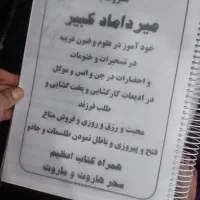 میرداماد کبیر
خود آموز در علوم و فنون غریبه
در تسخیرات و ختومات
و احضارات در جن و انس و موکل
در ادیعات کارگشایی و بخت گشایی و
طلب فرزند
محبت و رزق و روزی و فروش متاع
فتح و پیروزی و باطل نمودن طلسمات و جادو
همراه کتاب اعظیم
سحر هاروت و ماروت